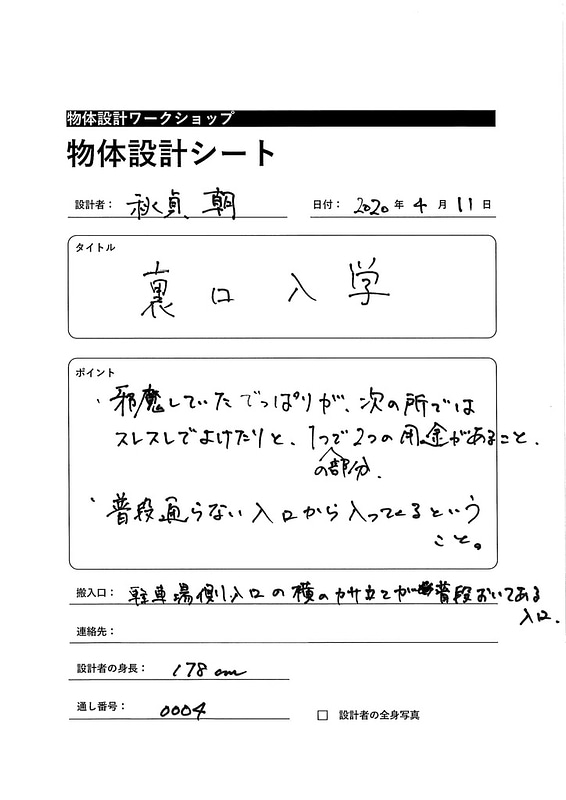 物体設計ワークショップ
物体設計シート
設計者： 秋貞 朝
日付： 2020 年 4 月 11 日
タイトル
裏口入学
ポイント
・邪魔していたでっぱりが、次の所では
スレスレでよけたりと、1つで2つの用途があること、
の部分.
・普段通らない入口から入ってくるという
こと。
搬入口： 駐車場側入口の横のカサ立てが普段おいてある
入口.
連絡先：
設計者の身長： 178cm
通し番号： 0004
□ 設計者の全身写真